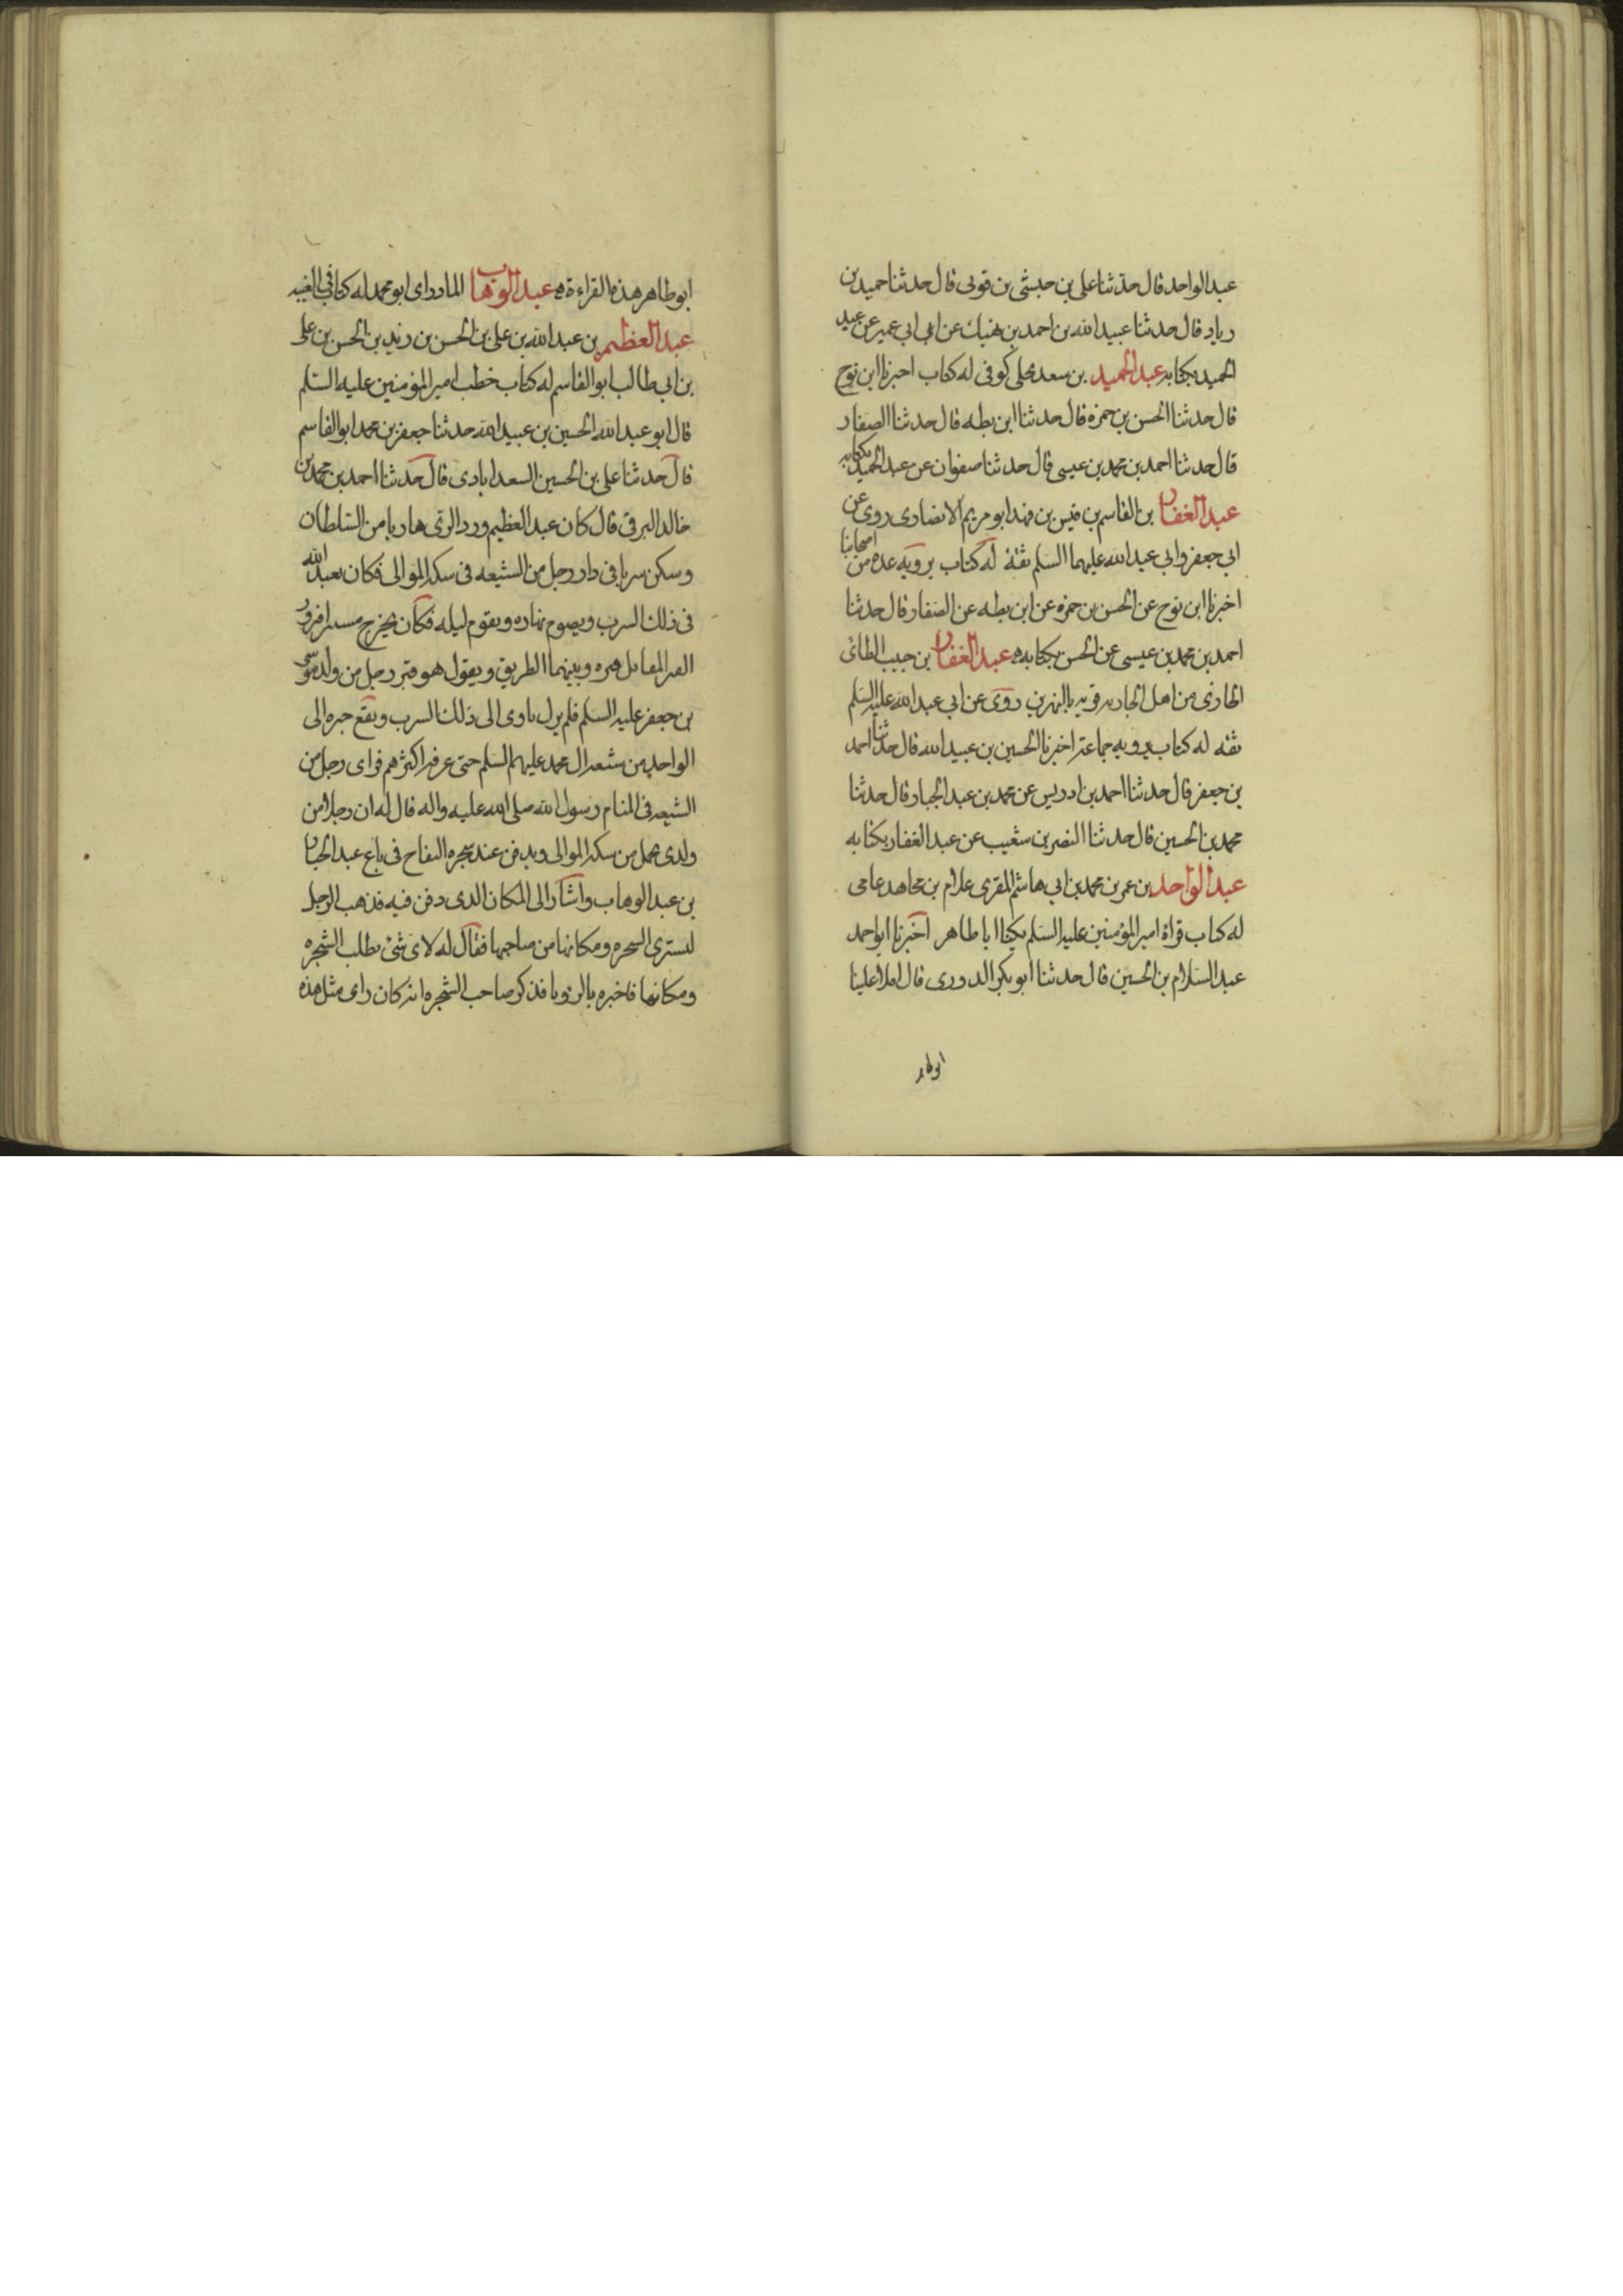 عبد الواحد قال حدثنا علي بن حبشي بن قوني قال حدثنا حميد بن
زياد قال حدثنا عبيد الله بن احمد بن نهيك عن ابن ابي عمير عن عبد
الحميد بكتابه عبد الحميد بن سعد بجلي كوفي له كتاب اخبرنا ابن نوح
قال حدثنا الحسن بن حمزه قال حدثنا ابن بطه قال حدثنا الصفار
قال حدثنا احمد بن محمد بن عيسى قال حدثنا صفوان عن عبد الحميد بكتابه
عبد الغفار بن القاسم بن قيس بن فهد ابو مريم الانصارى روى عن
ابي جعفر وابي عبد الله عليهما السلم ثقة له كتاب يرويه عده من اصحابنا
اخبرنا ابن نوح عن الحسن بن حمزه عن ابن بطه عن الصفار قال حدثنا
احمد بن محمد بن عيسى عن الحسن بكتابه عبد الغفار بن حبيب الطائى
الجازى من اهل الجازيه قريه بالنهرين روى عن ابي عبد الله عليه السلم
ثقه له كتاب يرويه جماعة اخبرنا الحسين بن عبيد الله قال حدثنا احمد
بن جعفر قال حدثنا احمد بن ادريس عن محمد بن عبد الجبار قال حدثنا
محمد بن الحسين قال حدثنا النضر بن شعيب عن عبد الغفار بكتابه
عبد الواحد بن عمر بن محمد بن ابي هاشم المقرى غلام بن مجاهد عامى
له كتاب قراة امير المؤمنين عليه السلم يكنا ابا طاهر اخبرنا ابو احمد
عبد السلام بن الحسين قال حدثنا ابو بكر الدورى قال املا علينا
ابو طاهر
ابو طاهر هذه القراءة عبد الوهاب المادراى ابو محمد له كتاب في الغيبه
عبد العظيم بن عبد الله بن على بن الحسن بن زيد بن الحسن بن على
بن ابي طالب ابو القاسم له كتاب خطب امير المؤمنين عليه السلم
قال ابو عبد الله الحسين بن عبيد الله حدثنا جعفر بن محمد ابو القاسم
قال حدثنا على بن الحسين السعدابادى قال حدثنا احمد بن محمد بن
خالد البرقى قال كان عبد العظيم ورد الرى هاربا من السلطان
وسكن سربا فى دار رجل من الشيعه فى سكة الموالى فكان يعبد الله
فى ذلك السرب ويصوم نهاره ويقوم ليله فكان يخرج مستترا فيزور
القبر المقابل قبره وبينهما الطريق ويقول هو قبر رجل من ولد موسى
بن جعفر عليه السلم فلم يزل ياوى الى ذلك السرب ويقع خبره الى
الواحد من شيعة ال محمد عليهم السلم حتى عرفه اكثرهم فراى رجل من
الشيعه فى المنام رسول الله صلى الله عليه واله قال له ان رجلا من
ولدى يحمل من سكة الموالى ويدفن عند شجره التفاح فى باغ عبد الجبار
بن عبد الوهاب واشار الى المكان الذى دفن فيه فذهب الرجل
ليشترى الشجره ومكانها من صاحبها فقال له لاى شئ تطلب الشجره
ومكانها فاخبره بالرؤيا فذكر صاحب الشجره انه كان راى مثل هذه